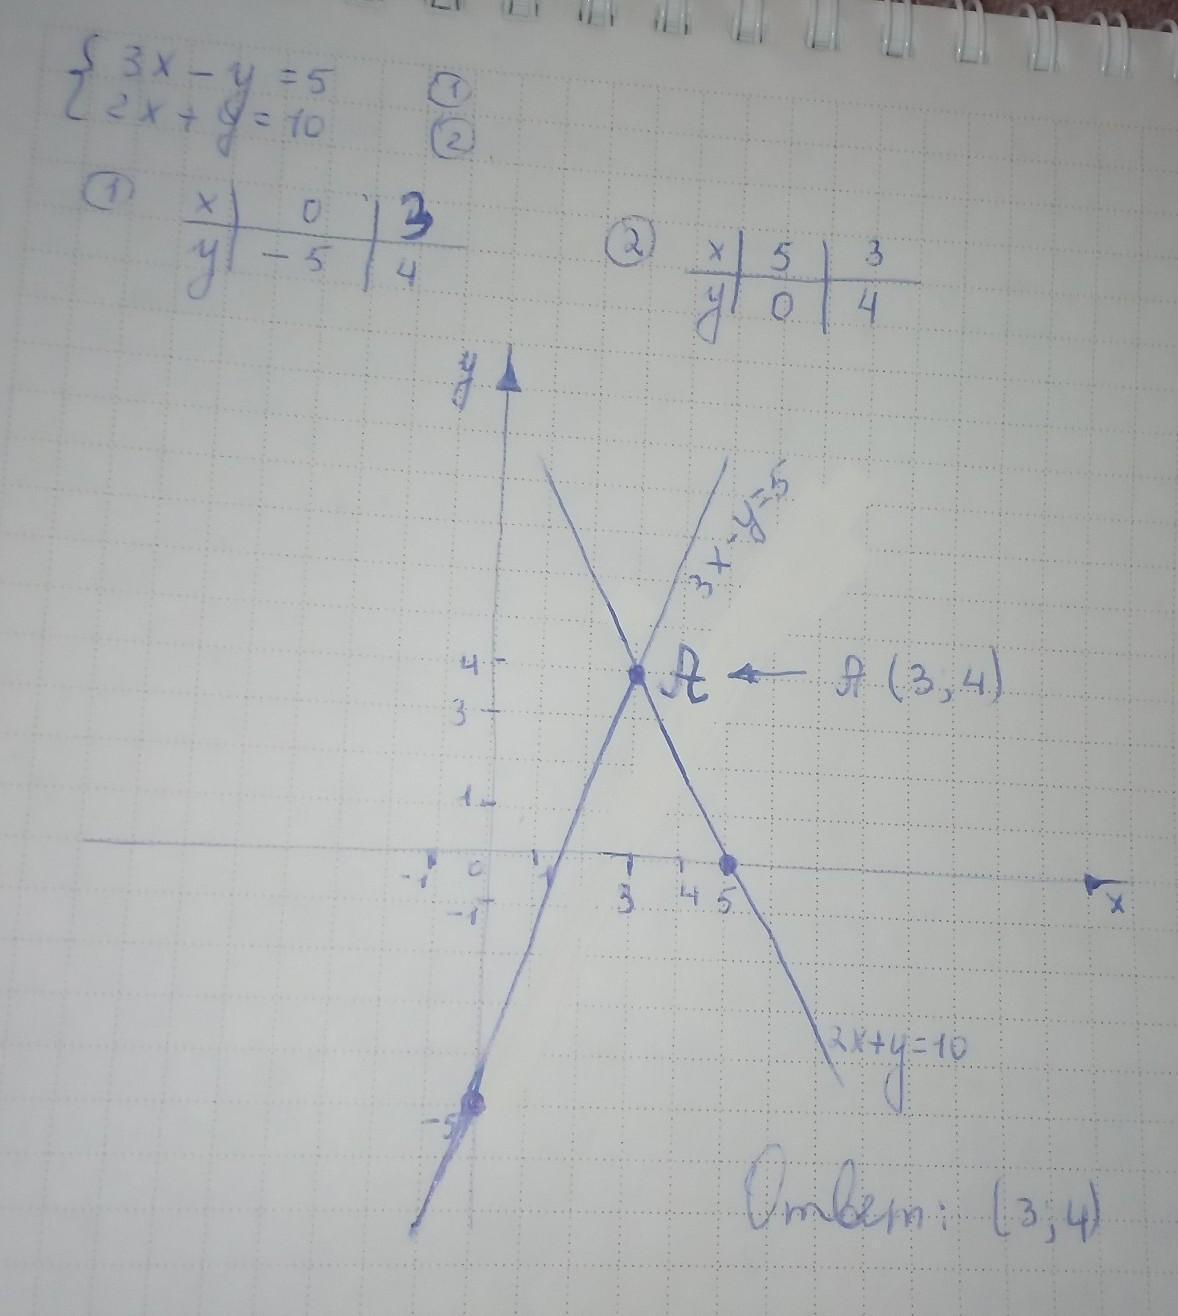 { 3x - y = 5 ①
2x + y = 10 ②
① x | 0 | 3
y | -5 | 4
② x | 5 | 3
y | 0 | 4
y
3x-y=5
4
A ← A (3;4)
3
1
-1 0 1 3 4 5 x
-1
2x+y=10
-5
Ответ: (3;4)